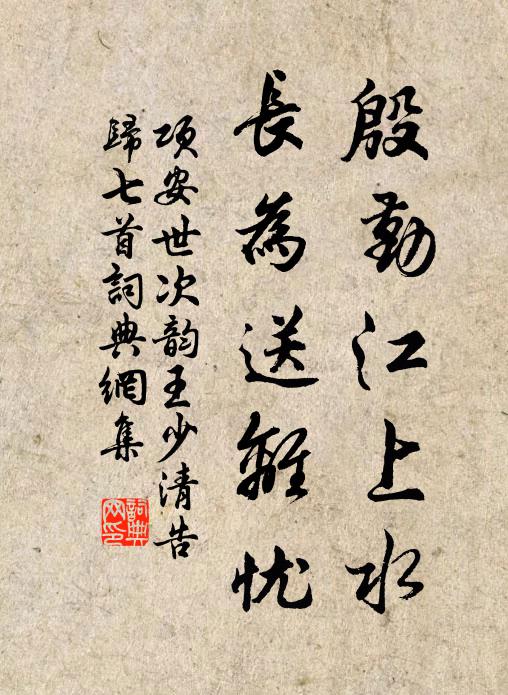 殷勤江上水
長為送離忧
项安世次韵王少清告
歸七首詞典網集
詞典
网印